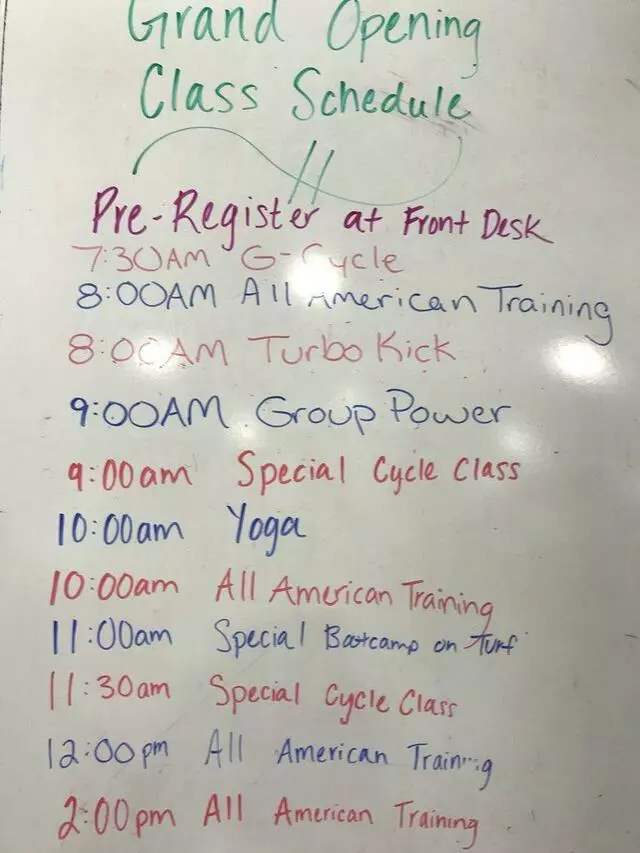 Grand Opening
Class Schedule
Pre-Register at Front Desk
7:30AM G-Cycle
8:00AM All American Training
8:00AM Turbo Kick
9:00AM Group Power
9:00am Special Cycle Class
10:00am Yoga
10:00am All American Training
11:00am Special Bootcamp on Turf
11:30am Special Cycle Class
12:00pm All American Training
2:00pm All American Training